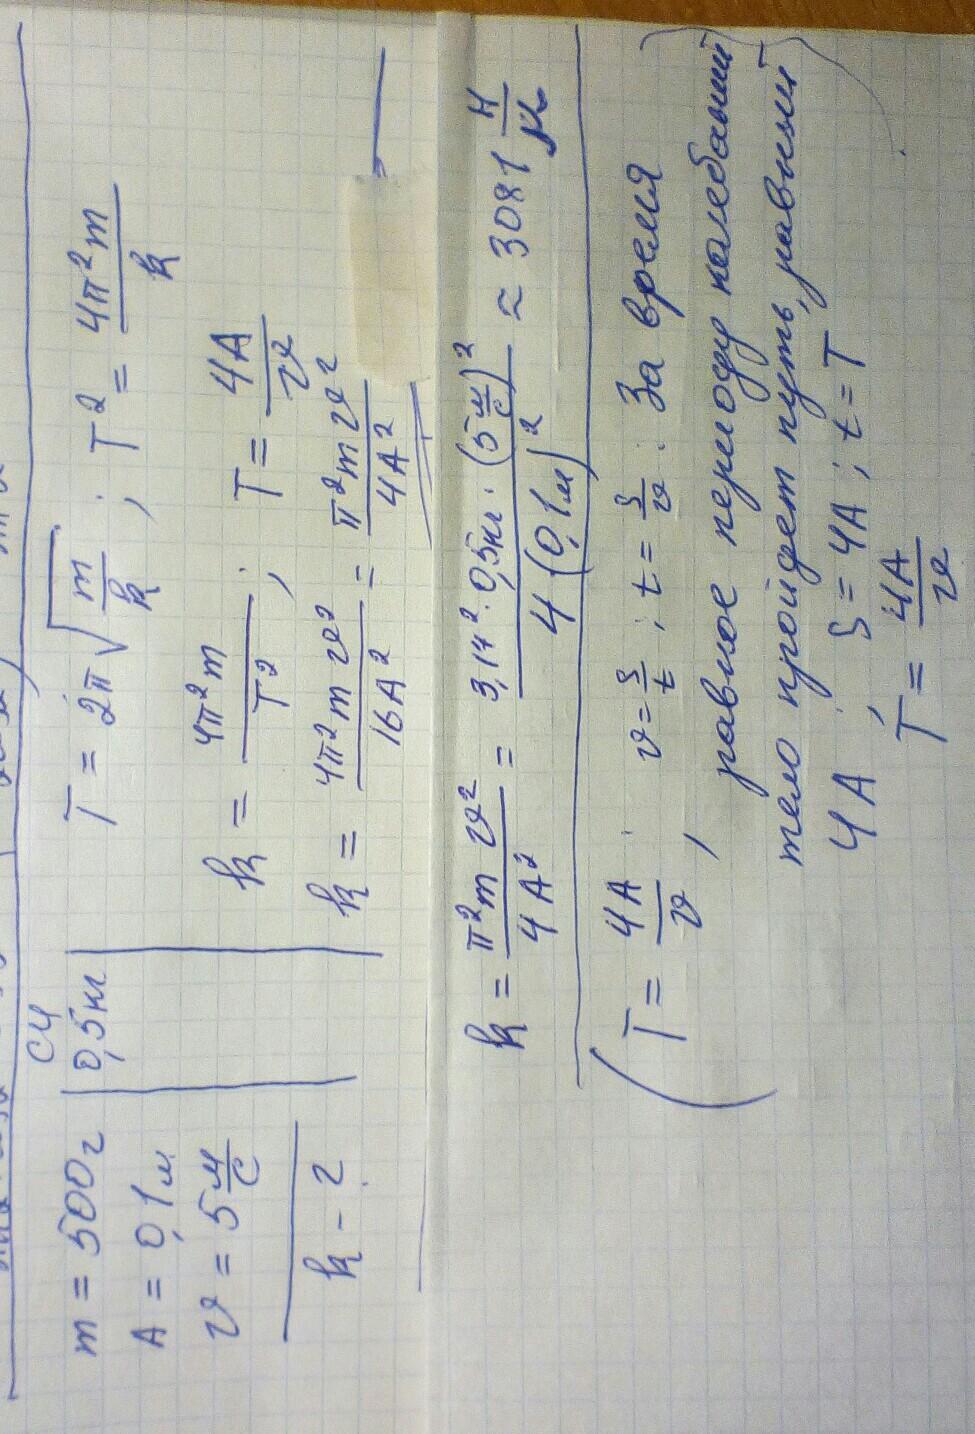 СИ
m = 500г | 0,5кг | T = 2π√(m/k) ; T² = 4π²m/k
A = 0,1м
υ = 5 м/с
k = 4π²m/T² ; T = 4A/υ
k - ?
k = 4π²mυ²/16A² = π²mυ²/4A²
k = π²mυ²/4A² = 3,14² · 0,5кг · (5 м/с)²/4(0,1м)² ≈ 3081 Н/м
(T = 4A/υ, υ = S/t ; t = S/υ : За время
равное периоду колебаний
тело пройдет путь, равный
4A, S = 4A ; t = T
T = 4A/υ)